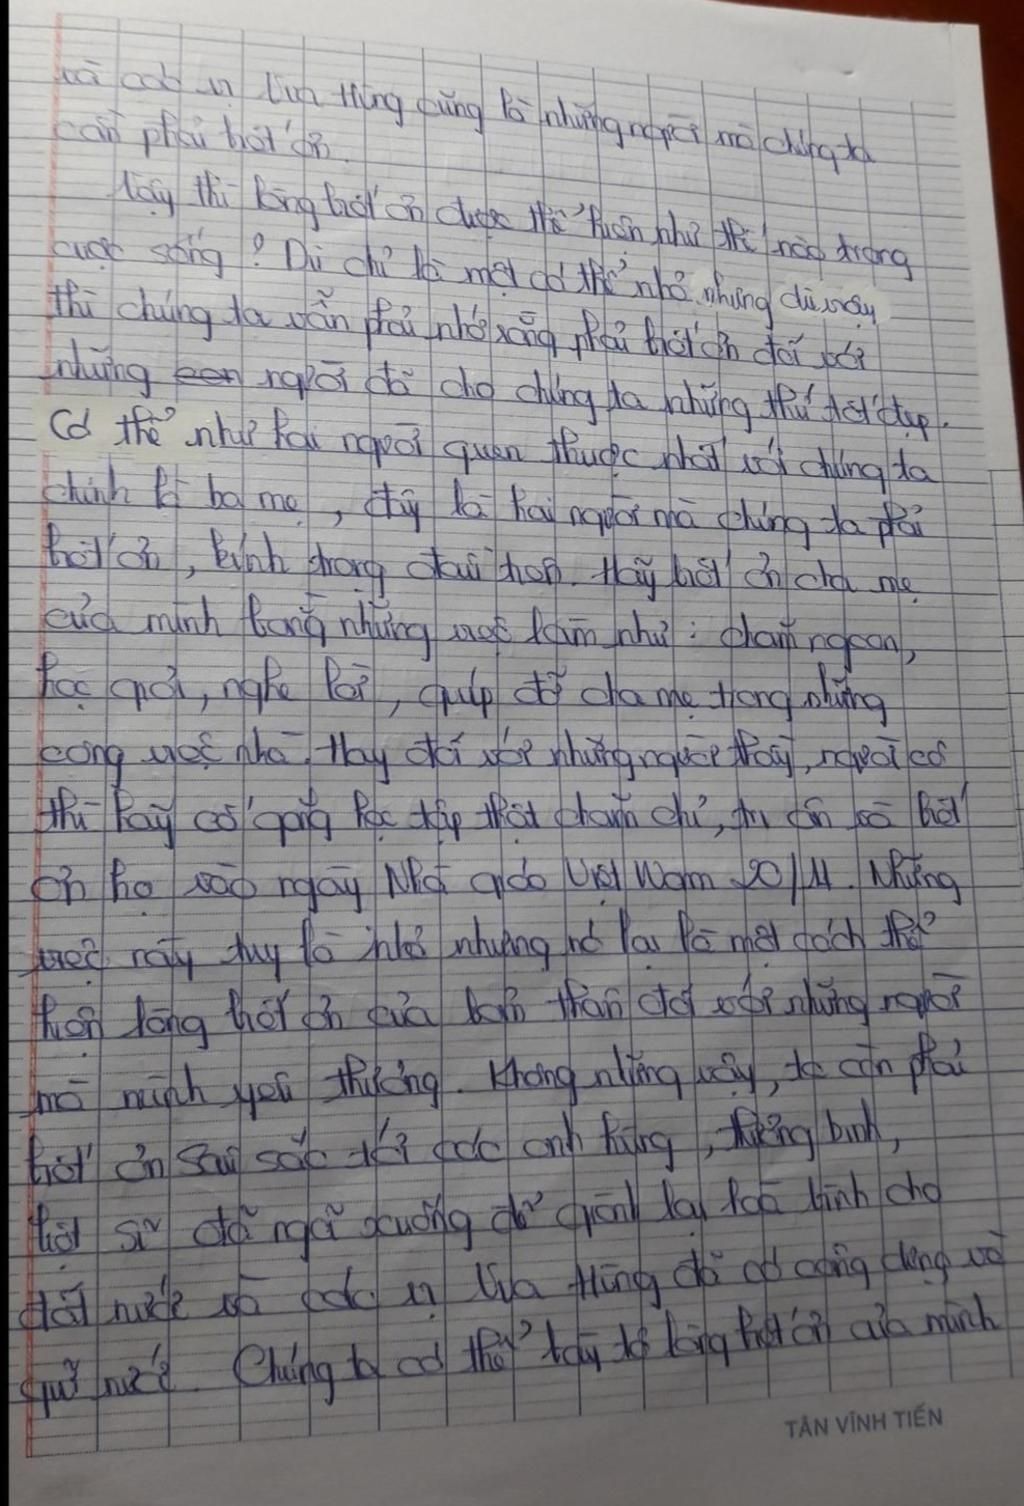 và các vị Vua Hùng cũng là những người mà chúng ta
cần phải biết ơn.
Vậy thì lòng biết ơn được thể hiện như thế nào trong
cuộc sống? Dù chỉ là một cá thể nhỏ nhưng dù vậy
thì chúng ta vẫn phải nhớ rằng phải biết ơn đối với
những con người đã cho chúng ta những thứ tốt đẹp.
Có thể như hai người quen thuộc nhất với chúng ta
chính là ba mẹ, đây là hai người mà chúng ta phải
biết ơn, kính trọng đầu tiên. Hãy biết ơn cha mẹ
của mình bằng những việc làm như: chăm ngoan,
học giỏi, nghe lời, giúp đỡ cha mẹ trong những
công việc nhà. Hay đối với những người thầy, người cô
thì hãy cố gắng học tập thật chăm chỉ, tri ân và biết
ơn họ vào ngày Nhà giáo Việt Nam 20/11. Những
việc này tuy là nhỏ nhưng nó lại là một cách thể
hiện lòng biết ơn của bản thân đối với những người
mà mình yêu thương. Không những vậy, ta cần phải
biết ơn sâu sắc tới các anh hùng, thương binh,
liệt sĩ đã ngã xuống để giành lại hoà bình cho
đất nước và các vị Vua Hùng đã có công dựng và
giữ nước. Chúng ta có thể bày tỏ lòng biết ơn của mình
TÂN VĨNH TIẾN